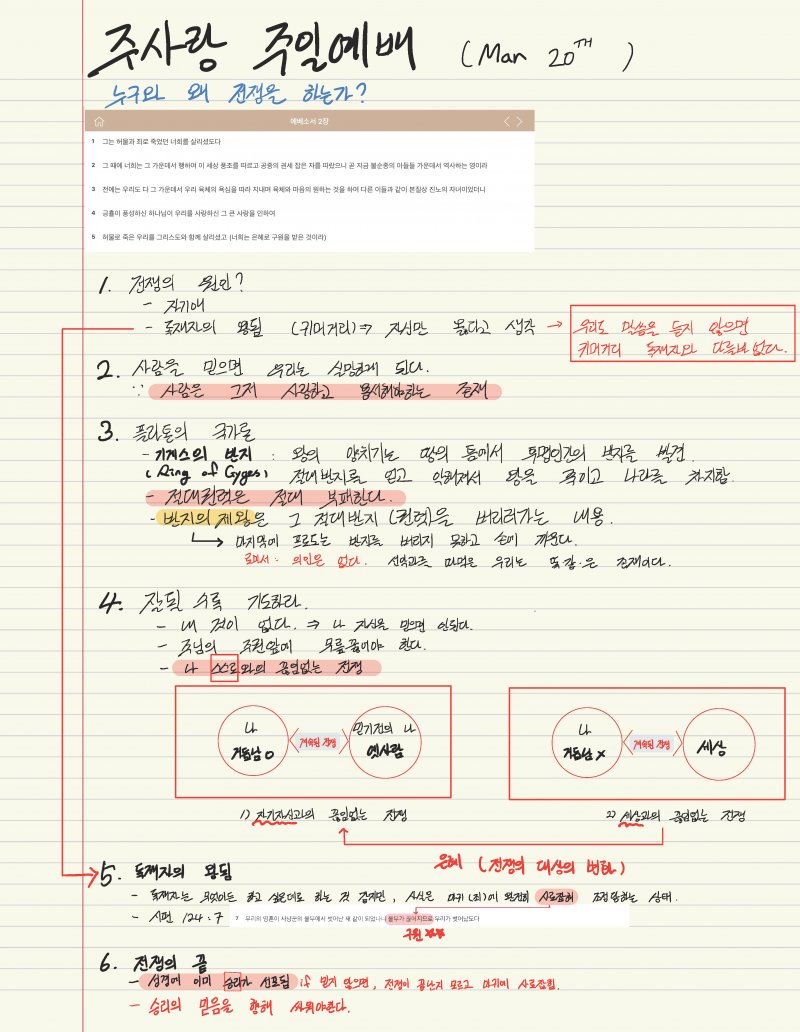 주사랑 주일예배 (Mar 20TH)
누구와 왜 전쟁을 하는가?
에베소서 2장
1 그는 허물과 죄로 죽었던 너희를 살리셨도다
2 그 때에 너희는 그 가운데서 행하여 이 세상 풍조를 따르고 공중의 권세 잡은 자를 따랐으니 곧 지금 불순종의 아들들 가운데서 역사하는 영이라
3 전에는 우리도 다 그 가운데서 우리 육체의 욕심을 따라 지내며 육체와 마음의 원하는 것을 하여 다른 이들과 같이 본질상 진노의 자녀이었더니
4 긍휼이 풍성하신 하나님이 우리를 사랑하신 그 큰 사랑을 인하여
5 허물로 죽은 우리를 그리스도와 함께 살리셨고 (너희는 은혜로 구원을 받은 것이라)
1. 전쟁의 원인?
- 자기애
- 독재자의 왕됨 (귀머거리) ⇒ 자신만 옳다고 생각 →
우리도 말씀을 듣지 않으면
귀머거리 독재자와 다를바 없다.
2. 사람을 믿으면 우리는 실망하게 된다.
∵ 사람은 그저 사랑하고 용서해야하는 존재
3. 플라톤의 국가론
- 기게스의 반지 : 왕의 양치기는 땅의 틈에서 투명인간의 반지를 발견.
(Ring of Gyges) 절대반지를 얻고 악해져서 왕을 죽이고 나라를 차지함.
- 절대권력은 절대 부패한다.
- 반지의 제왕은 그 절대반지 (권력)을 버리러가는 내용.
↳ 마지막에 프로도는 반지를 버리지 못하고 손에 끼운다.
로마서 : 의인은 없다. 선악과를 따먹은 우리는 똑같은 존재이다.
4. 잘될 수록 기도하라.
- 내 것이 없다. ⇒ 나 자신을 믿으면 안된다.
- 주님의 주권앞에 무릎꿇어야 한다.
- 나 스스로와의 끊임없는 전쟁
나
거듭남 O
계속된 전쟁
믿기전의 나
옛사람
나
거듭남 X
계속된 전쟁
세상
1) 자기자신과의 끊임없는 전쟁
2) 세상과의 끊임없는 전쟁
은혜 (전쟁의 대상의 변화)
5. 독재자의 왕됨
- 독재자는 무엇이든 하고 싶은대로 하는 것 같지만, 사실은 마귀(죄)에 완전히 사로잡혀 조정당하는 상태.
- 시편 124:7
7 우리의 영혼이 사냥꾼의 올무에서 벗어난 새 같이 되었나니 올무가 끊어지므로 우리가 벗어났도다
구원 ★★
6. 전쟁의 끝
- 성경에 이미 승리가 선포됨 if 믿지 않으면, 전쟁이 끝난지 모르고 마귀에 사로잡힘.
- 승리의 믿음을 향해 싸워야한다.